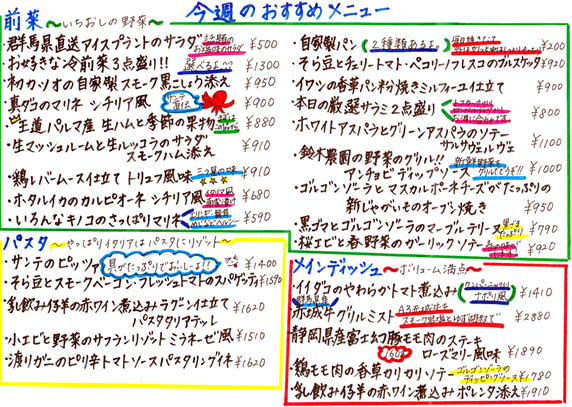 今週のおすすめメニュー
前菜 〜いちおしの野菜〜
・群馬県直送アイスプラントのサラダ 話題のお塩味のサラダ ¥500
・お好きな冷前菜3点盛り!! 選べるよ?? ¥1300
・初カツオの自家製スモーク黒こしょう添え ¥950
・真ダコのマリネ シチリア風 ¥900
・王道パルマ産 生ハムと季節の果物 ¥880
・生マッシュルームと生ルッコラのサラダ
スモークハム添え ¥910
・鶏レバームース仕立て トリュフ風味 ¥910
・ホタルイカのカルピオーネ シチリア風 ¥680
・いろんなキノコのさっぱりマリネ ¥590
・自家製パン (2種類あるよ。) ¥200
・そら豆とチェリートマト・ペコリーノフレスコのブルスケッタ ¥920
・イワシの香草パン粉焼きミルフィーユ仕立て ¥900
・本日の厳選サラミ2点盛り ¥800
・ホワイトアスパラとグリーンアスパラのソテー
サルサヴェルデ ¥1100
・鈴木農園の野菜のグリル!!
アンチョビディップソース ¥1000
・ゴルゴンゾーラとマスカルポーネチーズがたっぷりの
新じゃがいものオーブン焼き ¥950
・黒ゴマとゴルゴンゾーラのマーブルテリーヌ ¥790
・桜エビと春野菜のガーリックソテー ¥920
パスタ 〜やっぱりイタリアはパスタにリゾット〜
・サンテのピッツァ 具がたっぷりでおいしーよ!! ¥1400
・そら豆とスモークベーコン・フレッシュトマトのスパゲティ ¥1590
・乳飲み仔羊の赤ワイン煮込みラグーン仕立て
パスタタリアテッレ ¥1620
・小エビと野菜のサフランリゾット ミラネーゼ風 ¥1510
・渡りガニのピリ辛トマトソースパスタリングイネ ¥1620
メインディッシュ 〜ボリューム満点〜
・イイダコのやわらかトマト煮込み ナポリ風 ¥1410
群馬県産
・赤城牛グリルミスト ¥2880
・静岡県産富士幻豚モモ肉のステーキ
160g ローズマリー風味 ¥1890
・鶏モモ肉の香草カリカリソテー ゴルゴンゾーラのディッピングソース ¥1780
・乳飲み仔羊の赤ワイン煮込み ポレンタ添え ¥1910